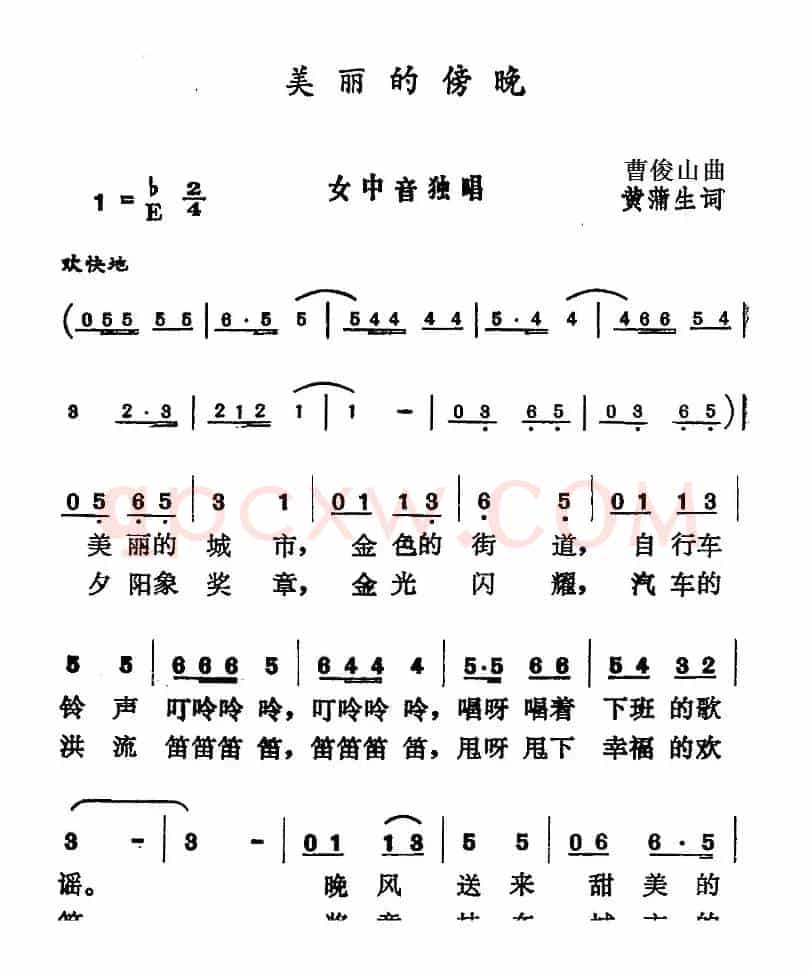 美丽的傍晚
曹俊山曲
1=♭E 2/4 女中音独唱
黄蒲生词
欢快地
(055 55 | 6·5 5 | 544 44 | 5·4 4 | 466 54 |
3 2·3 | 212 1 | 1 - | 03 65 | 03 65) |
05 65 | 3 1 | 01 13 | 6 5 | 01 13 |
美丽的城市，金色的街道，自行车
夕阳象奖章，金光闪耀，汽车的
5 5 | 666 5 | 644 4 | 5·5 66 | 54 32 |
铃声叮呤呤呤，叮呤呤呤，唱呀唱着下班的歌
洪流笛笛笛笛，笛笛笛笛，甩呀甩下幸福的欢
3 - | 3 - | 01 13 | 5 5 | 06 6·5 |
谣。晚风送来甜美的
gpcxw.COM